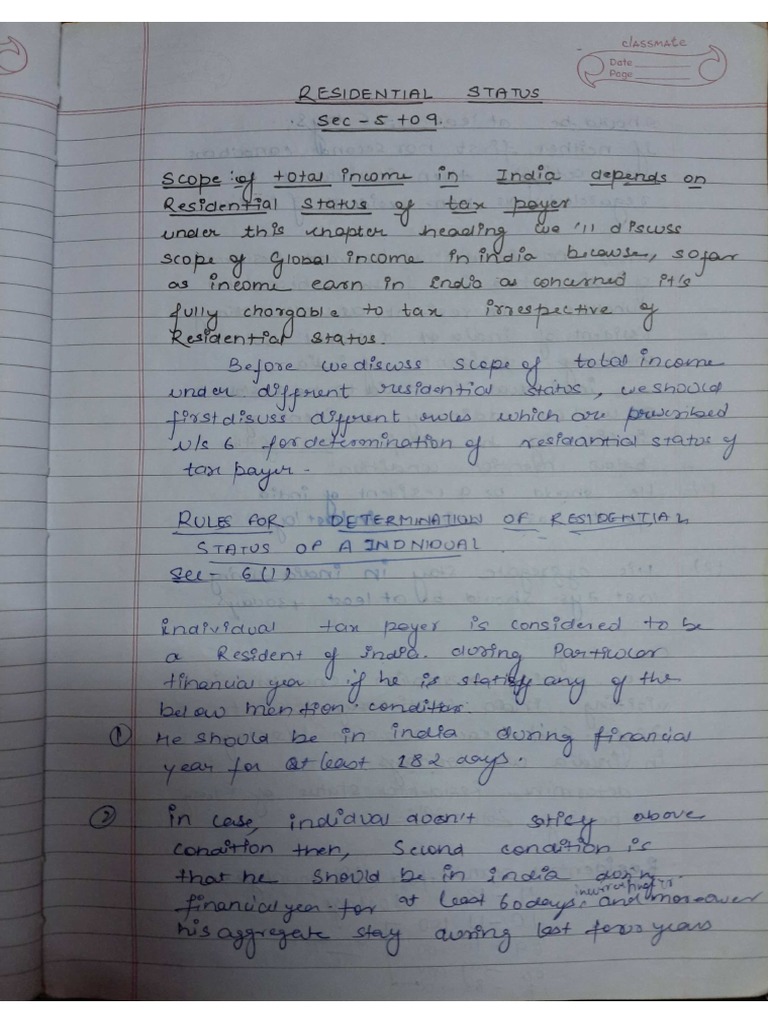 classmate
Date
Page
RESIDENTIAL STATUS
Sec - 5 to 9.
Scope of total income in India depends on
Residential Status of tax payer
under this chapter heading we'll discuss
scope of Global income in india because, sofar
as income earn in India as concerned it's
fully chargable to tax irrespective of
Residential Status.
Before we discuss scope of total income
under diffrent residential status, we should
first discuss diffrent rules which are prescribed
u/s 6 for determination of residantial status of
tax payer -
RULES FOR DETERMINATION OF RESIDENTIAL
STATUS OF A INDIVIDUAL
Sec - 6(1)
individual tax payer is considered to be
a Resident of india. during Particular
financial year if he is statisfy any of the
below mention condition.
① He should be in india during financial
year for at least 182 days.
② In case, individual doesn't satisfy above
condition then, Second condition is
that he should be in india during
financial year for at least 60 days, and moreover
his aggregate stay during last four years